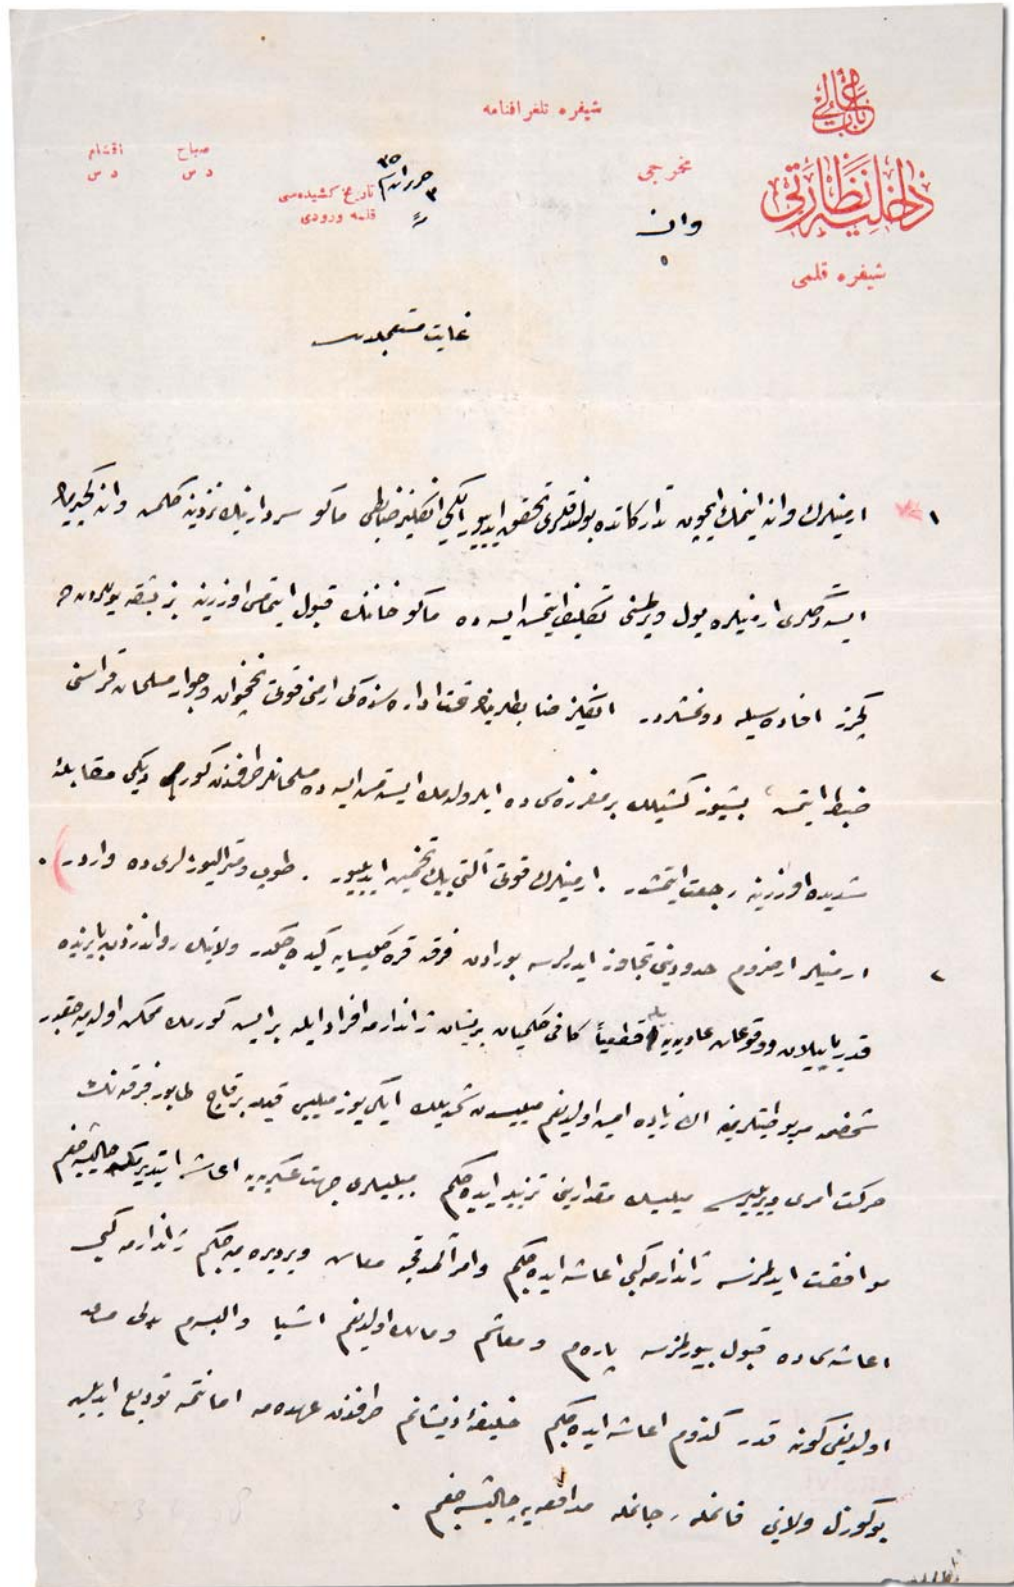 باب عالی
داخلیه نظارتی
شیفره قلمی
شیفره تلغرافنامه
مخرجی
وان
تاریخ کشیده‌سی
قلمه ورودی
۳ حزیران ۳۵
صباح
د س
اقشام
د س
غایت مستعجلدر
۱ ارمنیلرك وانه اینمك ایچون تداركاتده بولندقلری تحقق ایدییور ایكی انكلیز ضابطی ماكو سردارینك نزدینه كلمش وانه كچیرمك
ایستدكلری ارمنیلره یول ویرلمسنی تكلیف ایتمش ایسه ده ماكو خانك قبول ایتمامسی اوزرینه بز بشقه یولدن
كچرز افاده‌سیله دونمشلردر انكلیز ضابطلرینك تحت اداره‌سنده‌كی ارمنی قوتی نخچوان وجوار مسلمان قراسنی
ضبط ایتمش بشیوز كشیلك بر مفرزه‌سی ده ایلرولمك ایسته‌مش ایسه ده مسلمانلر طرفندن كوردیكی مقابلهٔ
شدیده اوزرینه رجعت ایتمشدر . ارمنیلرك قوتی آلتی بیك تخمین ایدیلیور . طوپ ومترالیوزلری ده واردر .
۲ ارمنیلر ارضروم حدودینی تجاوز ایدرلرسه بورادن فرقه قره كلیسایه كیده‌جكدر ولایتك رواندزدن بایزیده
قدر یاپیلان وقوعات عادیه‌یه بیله قطعیاً كافی كلمیان پریشان ژاندارمه افراد ایله بر ایش كورمك ممكن اولمیه‌جقدر
شخصمه مربوطیتلرینه الك زیاده امین اولدیغم میلیسدن شمدیلك ایكی یوز میلیس قید برقاچ طابور فرقه‌نك
حركت امری ویریلیرسه میلیسك مقدارینی تزیید ایده‌جكم میلیسلری جهت عسكریه‌یه اعاشه ایتدیرمكه چالیشه‌جغم
موافقت ایدلمزسه ژاندارمه كبی اعاشه ایده‌جكم وامر آلمدقجه معاش ویردیرمیه‌جكم ژاندارمه كبی
اعاشه‌ده قبول بیورلمزسه پاره‌م ومعاشم ومالك اولدیغم اشیا والبسه‌م بدلی مساعد
اولدیغی كونه قدر كندم اعاشه ایده‌جكم خلیفهٔ ذیشانم طرفندن عهده‌مه امانةً تودیع ایدیلن
بو كوزل ولایتی قانمله ، جانمله مدافعه‌یه چالیشه‌جغم .